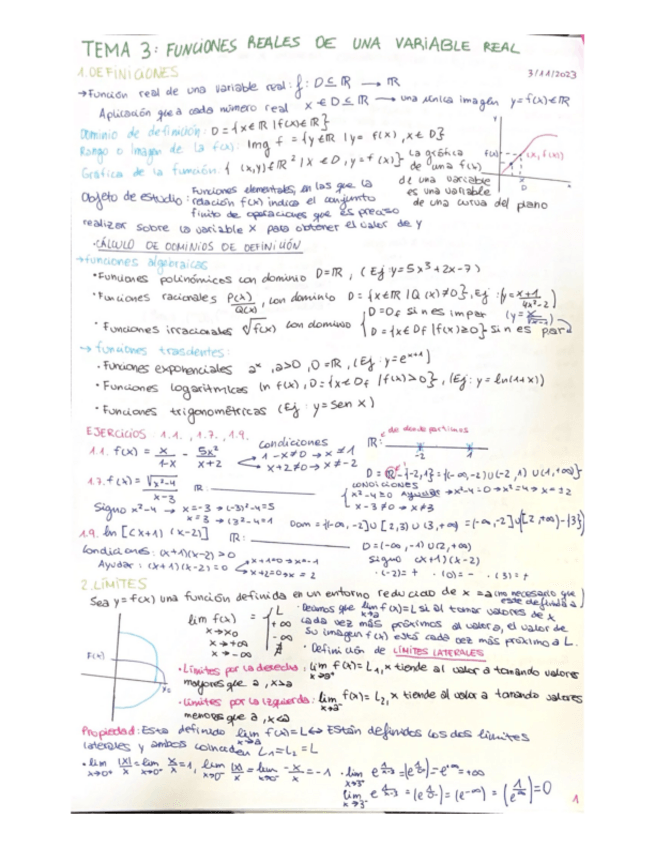 TEMA 3: FUNCIONES REALES DE UNA VARIABLE REAL
1. DEFINICIONES
3/11/2023
→ Función real de una variable real: f: D ⊆ ℝ → ℝ
Aplicación que a cada número real x ∈ D ⊆ ℝ → una única imagen y = f(x) ∈ ℝ
Dominio de definición: D = {x ∈ ℝ | f(x) ∈ ℝ}
Rango o Imagen de la f(x): Img f = {y ∈ ℝ | y = f(x), x ∈ D}
Gráfica de la función: {(x,y) ∈ ℝ² | x ∈ D, y = f(x)} La gráfica
de una f(x)
de una variable
es una variable
de una curva del plano
y
f(x)
(x, f(x))
x
D
Objeto de estudio: Funciones elementales, en las que la
relación f(x) indica el conjunto
finito de operaciones que es preciso
realizar sobre la variable x para obtener el valor de y
· CÁLCULO DE DOMINIOS DE DEFINICIÓN
→ funciones algebraicas
· Funciones polinómicas con dominio D = ℝ, (Ej: y = 5x³ + 2x - 7)
· Funciones racionales P(x)/Q(x), con dominio D = {x ∈ ℝ | Q(x) ≠ 0}, Ej: (y = x+1/4x²-2)
· Funciones irracionales √f(x) con dominio { D = Df si n es impar
D = {x ∈ Df | f(x) ≥ 0} si n es par
→ funciones trasdentes:
· Funciones exponenciales aˣ, a>0, D = ℝ, (Ej: y = eˣ⁺¹)
· Funciones logarítmicas ln f(x), D = {x ∈ Df | f(x) > 0}, (Ej: y = ln(1+x))
· Funciones trigonométricas (Ej: y = sen x)
EJERCICIOS: 1.1., 1.7., 1.9.
1.1. f(x) = x/1-x - 5x²/x+2
condiciones
1-x ≠ 0 → x ≠ 1
x+2 ≠ 0 → x ≠ -2
de donde partimos
ℝ:
-2 1
D = ℝ - {-2, 1} = (-∞, -2) ∪ (-2, 1) ∪ (1, +∞)
1.7. f(x) = √x²-4/x-3 ℝ:
condiciones
{ x²-4 ≥ 0 Ayudar → x²-4 = 0 → x² = 4 → x = ±2
x-3 ≠ 0 → x ≠ 3
Signo x²-4 → x = -3 → (-3)²-4 = 5
x = 3 → (3²-4 = 1
Dom = (-∞, -2] ∪ [2, 3) ∪ (3, +∞) = (-∞, -2] ∪ [2, +∞) - {3}
1.9. ln [(x+1)(x-2)] ℝ:
D = (-∞, -1) ∪ (2, +∞)
Condiciones: (x+1)(x-2) > 0
signo (x+1)(x-2)
Ayudar: (x+1)(x-2) = 0 x+1=0 → x=-1
x+2=0 → x = 2
· (-2) = + · (0) = - · (3) = +
2. LÍMITES
Sea y = f(x) una función definida en un entorno reducido de x = a (no necesario que
esté definida a)
lim f(x) = { L
+∞
-∞
∄
x → x₀
x → +∞
x → -∞
· Decimos que lim f(x) = L si al tomar valores de x
cada vez más próximos al valor a, el valor de
su imagen f(x) está cada vez más próximo a L.
· Definición de LÍMITES LATERALES
F(x)
x₀
· Límites por la derecha: lim f(x) = L₁, x tiende al valor a tomando valores
mayores que a, x>a
· Límites por la izquierda: lim f(x) = L₂, x tiende al valor a tomando valores
menores que a, x<a
Propiedad: Esta definido lim f(x) = L ⟺ Están definidos los dos límites
laterales y ambos coinciden L₁ = L₂ = L
· lim |x|/x = lim x/x = 1, lim |x|/x = lim -x/x = -1 · lim e
= e⁺∞ = +∞
lim e
= (e⁻∞) = (1/e∞) = 0
1